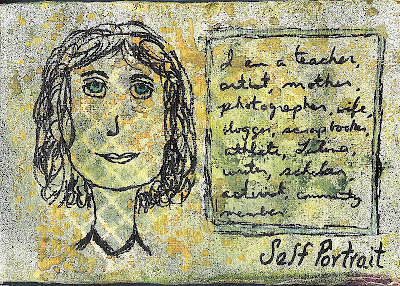 I am a teacher,
artist, mother,
photographer, wife,
blogger, scrapbooker,
athlete, Latina,
writer, scholar,
activist, community
member
Self Portrait